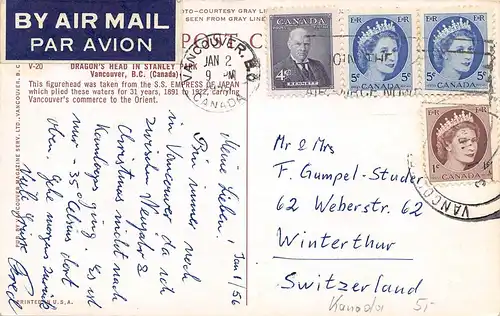 BY AIR MAIL
PAR AVION
V-20
DRAGON'S HEAD IN STANLEY PARK
Vancouver, B.C. (Canada)
This figurehead was taken from the S.S. EMPRESS OF JAPAN
which plied these waters for 31 years, 1891 to 1922, carrying
Vancouver's commerce to the Orient.
COURTESY GRAY LINE
SEEN FROM GRAY LINE
VANCOUVER, B.C.
JAN 2
9
CANADA
4¢
BENNETT
CANADA
5¢
CANADA
5¢
CANADA
1¢
CANADA
Jan 1/56
Meine Lieben!
Bin immer noch
in Vancouver da ich
zwischen Neujahr &
Christmas nicht nach
Kamloops ging. Es ist
nur -35 Celsius dort
oben. Gehe morgen zurück
Fred
Mr & Mrs
F. Gumpel-Studer
62 Weberstr. 62
Winterthur
Switzerland
Kanada 5-
PRINTED IN U.S.A.